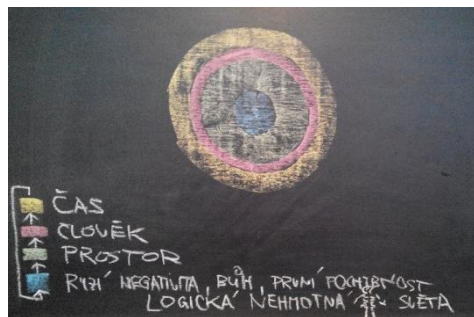 ČAS
ČLOVĚK
PROSTOR
RYZÍ NEGATIVITA, BŮH, PRVNÍ POCHYBNOST
LOGICKÁ NEHMOTNÁ SVĚTA